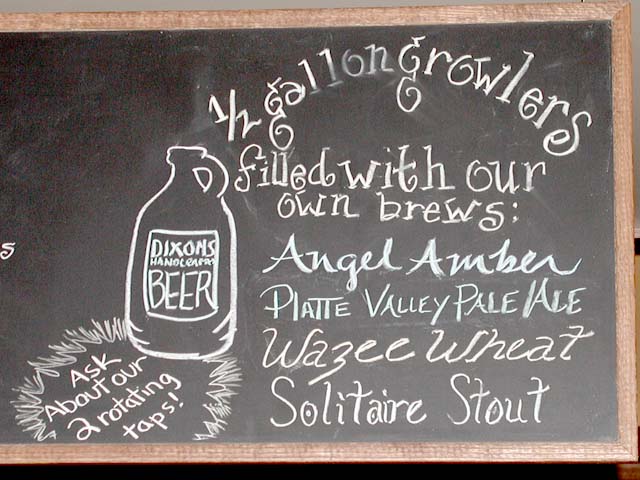 1/2 Gallon Growlers
filled with our
own brews:
Angel Amber
PLATTE VALLEY PALE ALE
Wazee Wheat
Solitaire Stout
DIXONS
BEER
Ask
About our
2 rotating
taps!